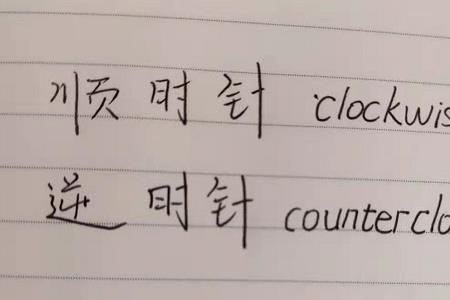 顺时针 clockwis
逆时针 counterclo